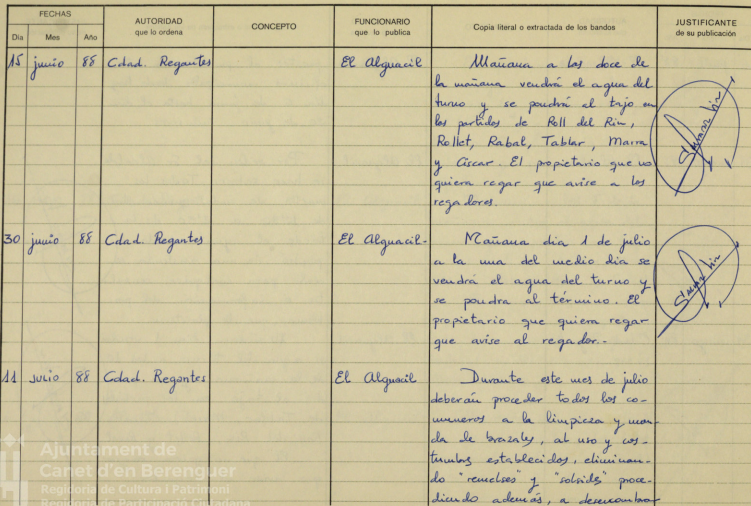 FECHAS
Día Mes Año
AUTORIDAD
que lo ordena
CONCEPTO
FUNCIONARIO
que lo publica
Copia literal o extractada de los bandos
JUSTIFICANTE
de su publicación
15 junio 88 Cdad. Regantes El Alguacil
Mañana a las doce de
la mañana vendrá el agua del
turno y se pondrá al tajo en
los partidos de Roll del Rin,
Rollet, Rabal, Tablar, Marra
y Ciscar. El propietario que no
quiera regar que avise a los
regadores.
30 junio 88 Cdad. Regantes El Alguacil-
Mañana dia 1 de julio
a la una del medio dia se
vendrá el agua del turno y
se pondra al término. El
propietario que quiera regar
que avise al regador.-
11 julio 88 Cdad. Regantes El Alguacil
Durante este mes de julio
deberán proceder todos los co-
muneros a la limpieza y mon-
da de brazales, al uso y cos-
tumbres establecidos, eliminan-
do "remelses" y "solsides" proce-
diendo además, a desescombrar
Ajuntament de
Canet d'en Berenguer
Regidoria de Cultura i Patrimoni
Regidoria de Participació Ciutadana